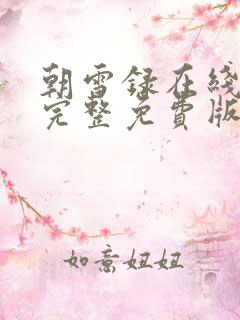 朝雪録在綫
完整免費版
如意妞妞